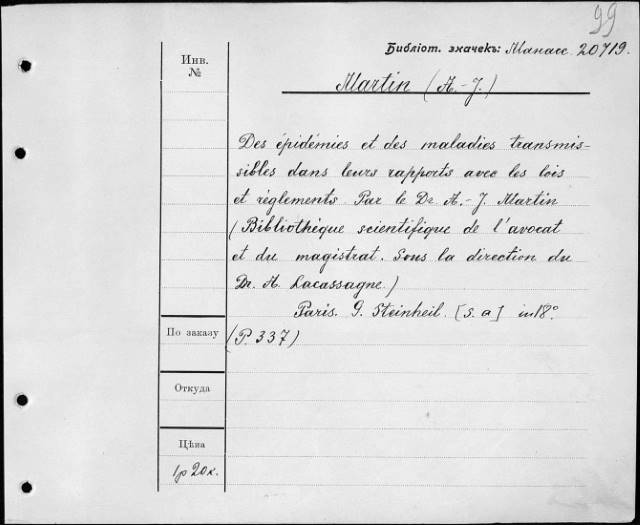 99
Библіот. значекъ: Манасс. 20719.
Инв.
№
Martin (A.-J.)
Des épidémies et des maladies transmis-
sibles dans leurs rapports avec les lois
et règlements. Par le Dr A.-J. Martin
(Bibliothèque scientifique de l'avocat
et du magistrat. Sous la direction du
Dr. A. Lacassagne.)
Paris. G. Steinheil. [s. a] in 18°.
По заказу
(P. 337)
Откуда
Цѣна
1р 20к.